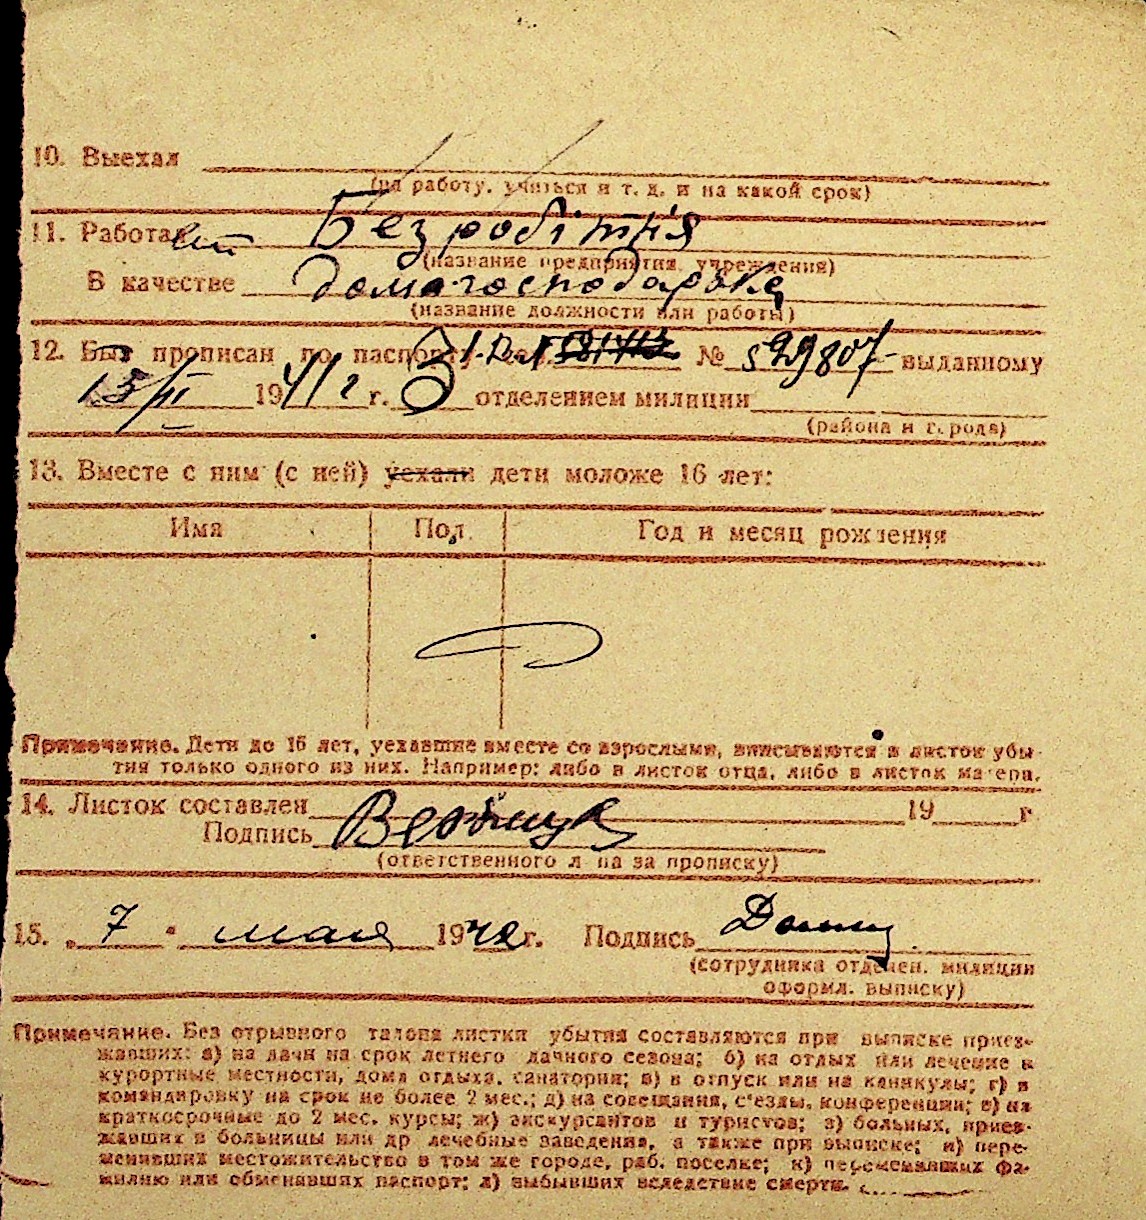 10. Выехал
(на работу, учиться и т. д. и на какой срок)
11. Работал Безробітня
(название предприятия, учреждения)
В качестве домагосподарка
(название должности или работы)
12. Был прописан по паспорту № 529807 выданному
15/II 1941 г. г. 3 отделением милиции
(района и города)
13. Вместе с ним (с ней) уехали дети моложе 16 лет:
Имя Пол Год и месяц рождения
Примечание. Дети до 16 лет, уехавшие вместе со взрослыми, вписываются в листок убы-
тия только одного из них. Например: либо в листок отца, либо в листок матери.
14. Листок составлен 19 г
Подпись
(ответственного лица за прописку)
15. „ 7 " мая 1942 г. Подпись
(сотрудника отделен. милиции
оформл. выписку)
Примечание. Без отрывного талона листки убытия составляются при выписке приез-
жавших: а) на дачи на срок летнего дачного сезона; б) на отдых или лечение в
курортные местности, дома отдыха, санатории; в) в отпуск или на каникулы; г) в
командировку на срок не более 2 мес.; д) на совещания, с'езды, конференции; е) на
краткосрочные до 2 мес. курсы; ж) экскурсантов и туристов; з) больных, приез-
жавших в больницы или др лечебные заведения, а также при выписке; и) пере-
менивших местожительство в том же городе, раб. поселке; к) переменивших фа-
милию или обменявших паспорт; л) выбывших вследствие смерти.